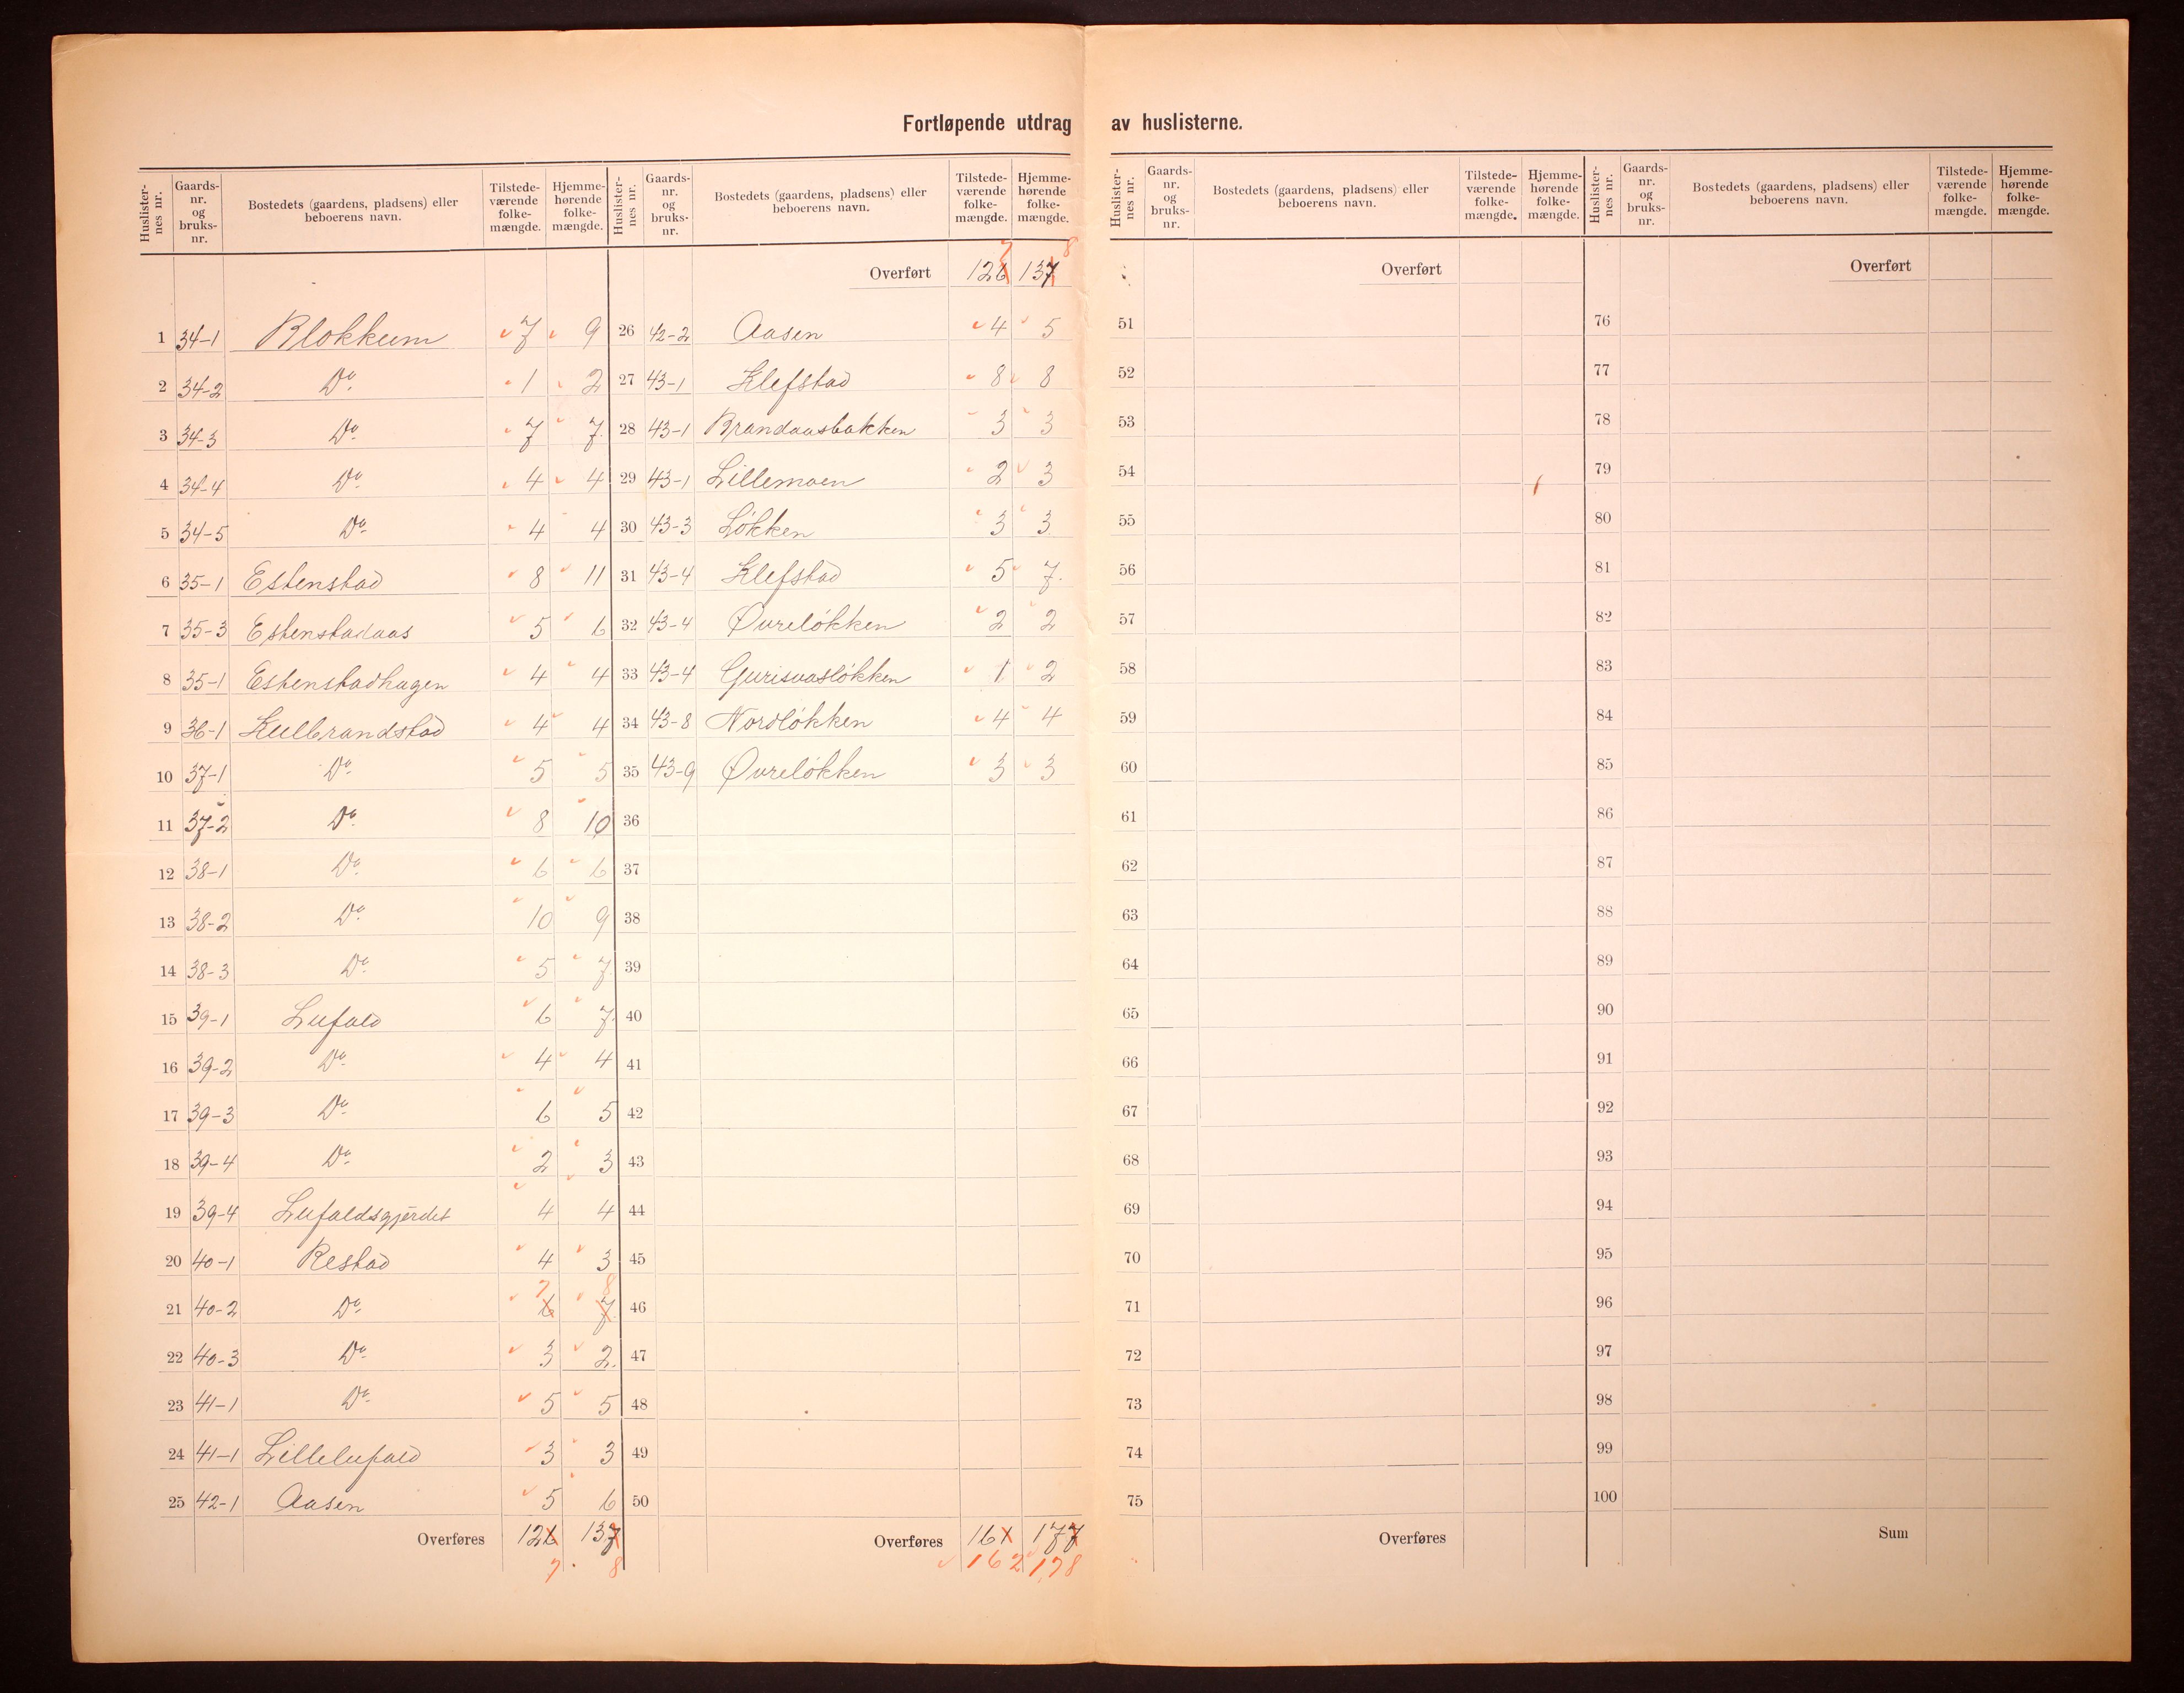 Fortløpende utdrag av huslisterne.
Huslister-nes nr. Gaards-nr. og bruks-nr. Bostedets (gaardens, pladsens) eller beboerens navn. Tilstede-værende folke-mængde. Hjemme-hørende folke-mængde.
1 34-1 Blokkum 7 9
2 34-2 Do. 1 2
3 34-3 Do. 7 7.
4 34-4 Do. 4 4
5 34-5 Do. 4 4
6 35-1 Estenstad 8 11
7 35-3 Estenstadaas 5 6
8 35-1 Estenstadhagen 4 4
9 36-1 Kulbrandstad 4 4
10 37-1 Do. 5 5
11 37-2 Do. 8 10
12 38-1 Do. 6 6
13 38-2 Do. 10 9
14 38-3 Do. 5 7.
15 39-1 Lufald 6 7.
16 39-2 Do. 4 4
17 39-3 Do. 6 5
18 39-4 Do. 2 3
19 39-4 Lufaldsgjerdet 4 4
20 40-1 Restad 4 3
7 8
21 40-2 Do. 6 7.
22 40-3 Do. 3 2.
23 41-1 Do. 5 5
24 41-1 Lillelufald 3 3
25 42-1 Aasen 5 6
Overføres 126 137
7. 8
Huslister-nes nr. Gaards-nr. og bruks-nr. Bostedets (gaardens, pladsens) eller beboerens navn. Tilstede-værende folke-mængde. Hjemme-hørende folke-mængde.
7 8
Overført 126 137
26 42-2 Aasen 4 5
27 43-1 Klefstad 8 8
28 43-1 Brandaasbakken 3 3
29 43-1 Lillemoen 2 3
30 43-3 Løkken 3 3
31 43-4 Klefstad 5 7.
32 43-4 Øvreløkken 2 2
33 43-4 Gurisvasløkken 1 2
34 43-8 Nordløkken 4 4
35 43-9 Øvreløkken 3 3
36
37
38
39
40
41
42
43
44
45
46
47
48
49
50
Overføres 161 177
162 178
Huslister-nes nr. Gaards-nr. og bruks-nr. Bostedets (gaardens, pladsens) eller beboerens navn. Tilstede-værende folke-mængde. Hjemme-hørende folke-mængde.
Overført
51
52
53
54
55
56
57
58
59
60
61
62
63
64
65
66
67
68
69
70
71
72
73
74
75
Overføres
Huslister-nes nr. Gaards-nr. og bruks-nr. Bostedets (gaardens, pladsens) eller beboerens navn. Tilstede-værende folke-mængde. Hjemme-hørende folke-mængde.
Overført
76
77
78
79
80
81
82
83
84
85
86
87
88
89
90
91
92
93
94
95
96
97
98
99
100
Sum